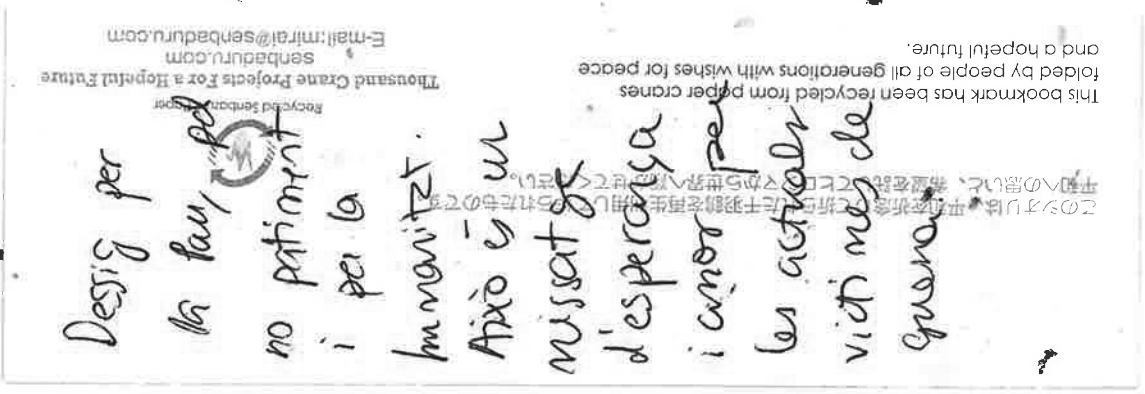 Dessig per
la Pau, pel
no patiment
i per la
humanitat.
Això és un
missatge
d'esperança
i amor per
les actuals
victimes de
guerra.
このシオリは、平和を祈念して折られた千羽鶴を再生利用して作られたものです
平和への思いと、希望を託してヒロシマから世界へ かせてください。
This bookmark has been recycled from paper cranes
folded by people of all generations with wishes for peace
and a hopeful future.
Recycled Senbaduru Paper
Thousand Crane Projects For a Hopeful Future
senbaduru.com
E-mail:mirai@senbaduru.com